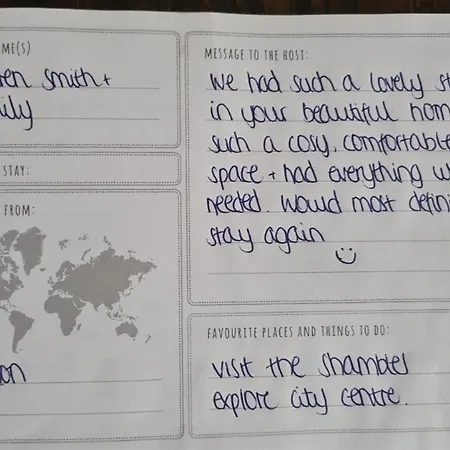 ME(S)
en Smith +
ily
STAY:
FROM:
on
MESSAGE TO THE HOST:
We had such a lovely st
in your beautiful hom
such a cosy, comfortable
space + had everything w
needed. Would most defini
stay again
FAVOURITE PLACES AND THINGS TO DO:
visit the Shambles
explore city centre.